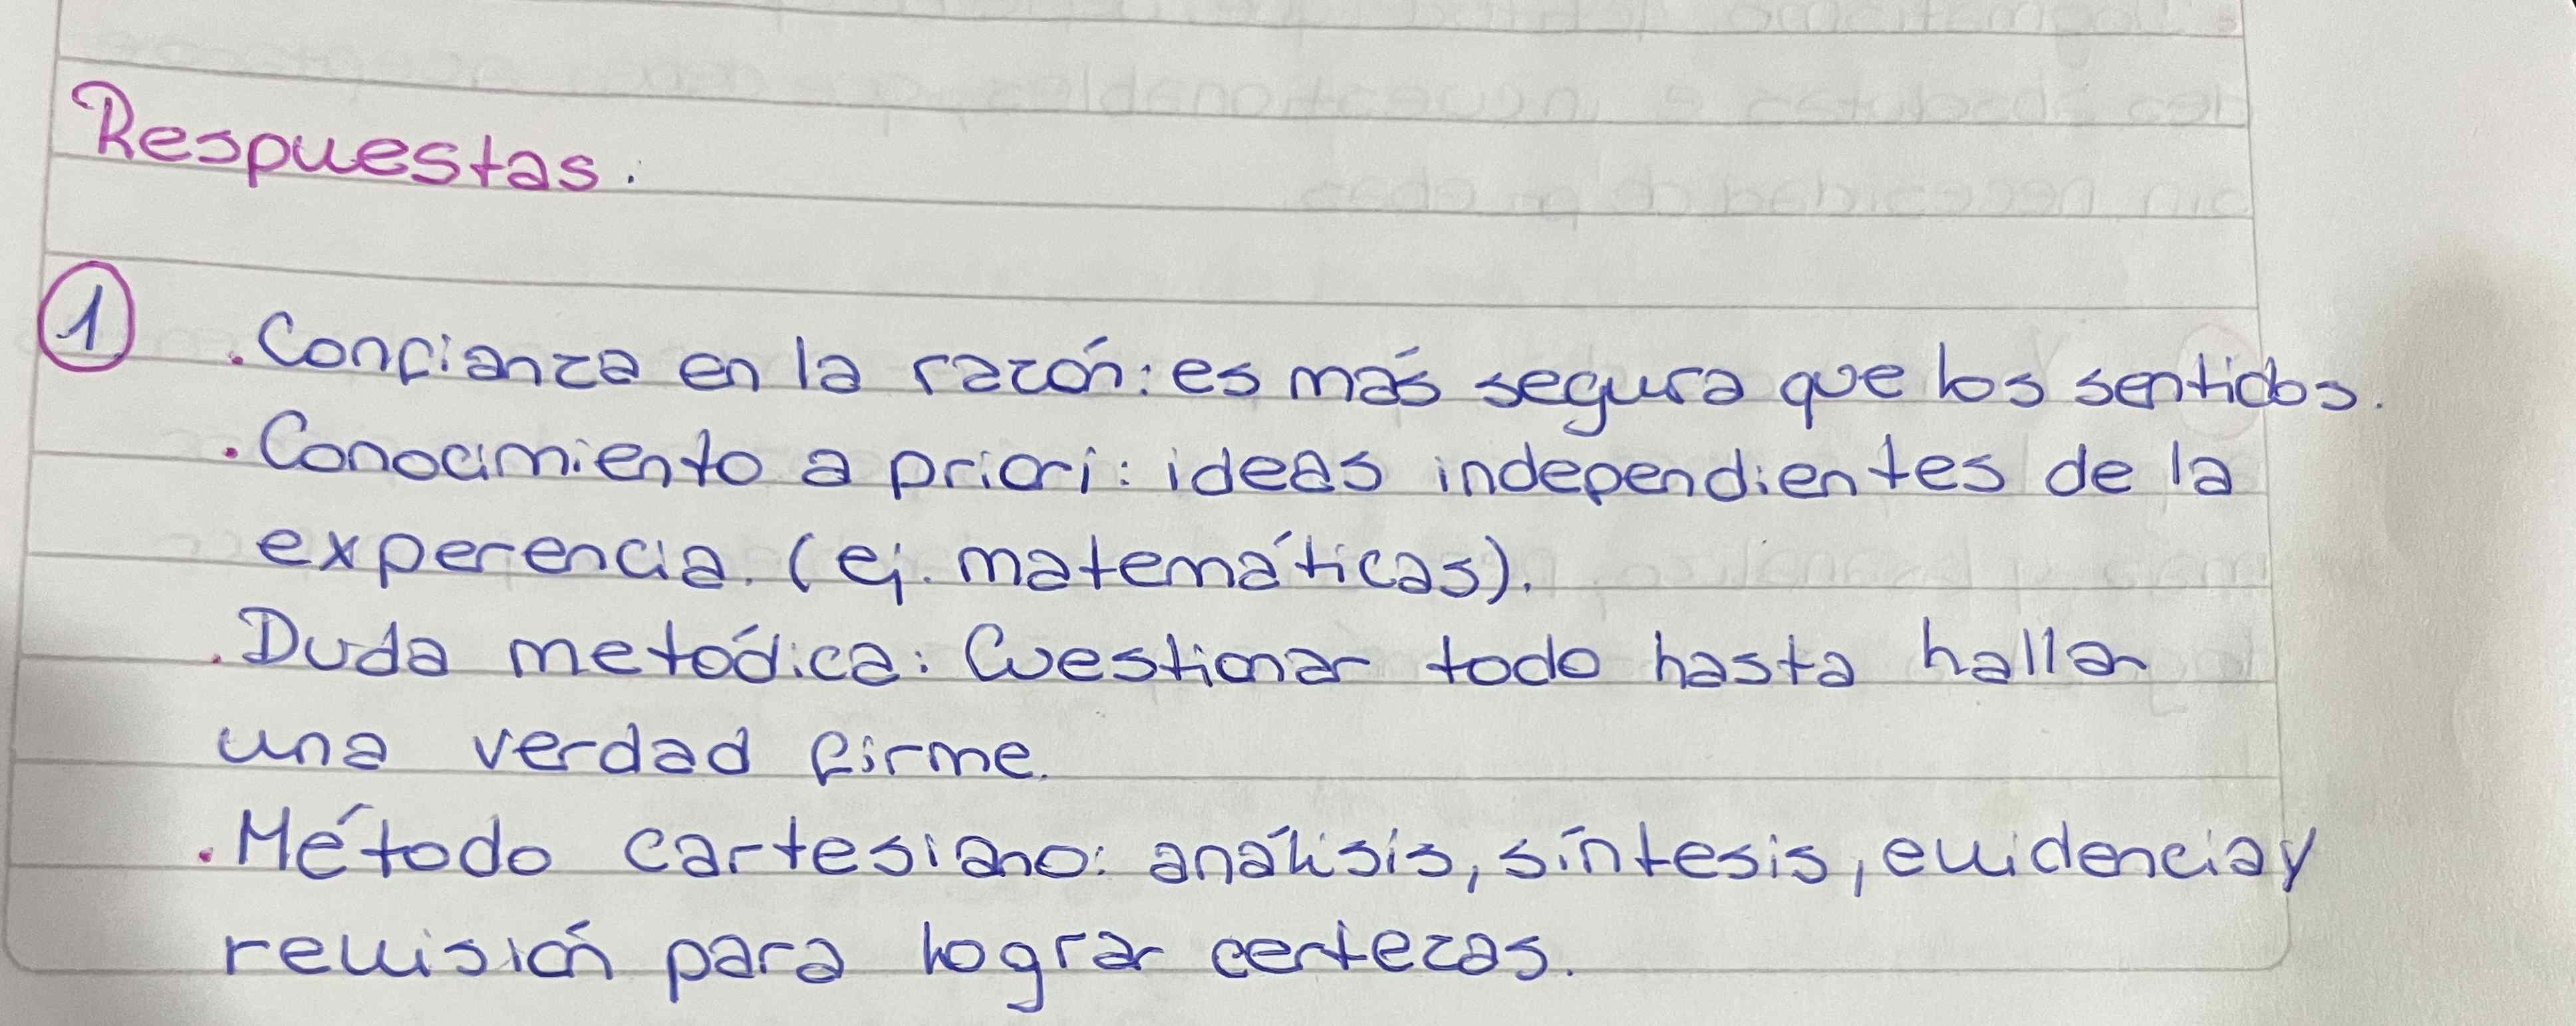 Respuestas.
1 . Confianza en la razón: es más segura que los sentidos.
. Conocimiento a priori: ideas independientes de la
experencia. (ej. matemáticas).
. Duda metódica: Cuestionar todo hasta hallar
una verdad firme.
. Método cartesiano: análisis, síntesis, evidencia y
revisión para lograr certezas.